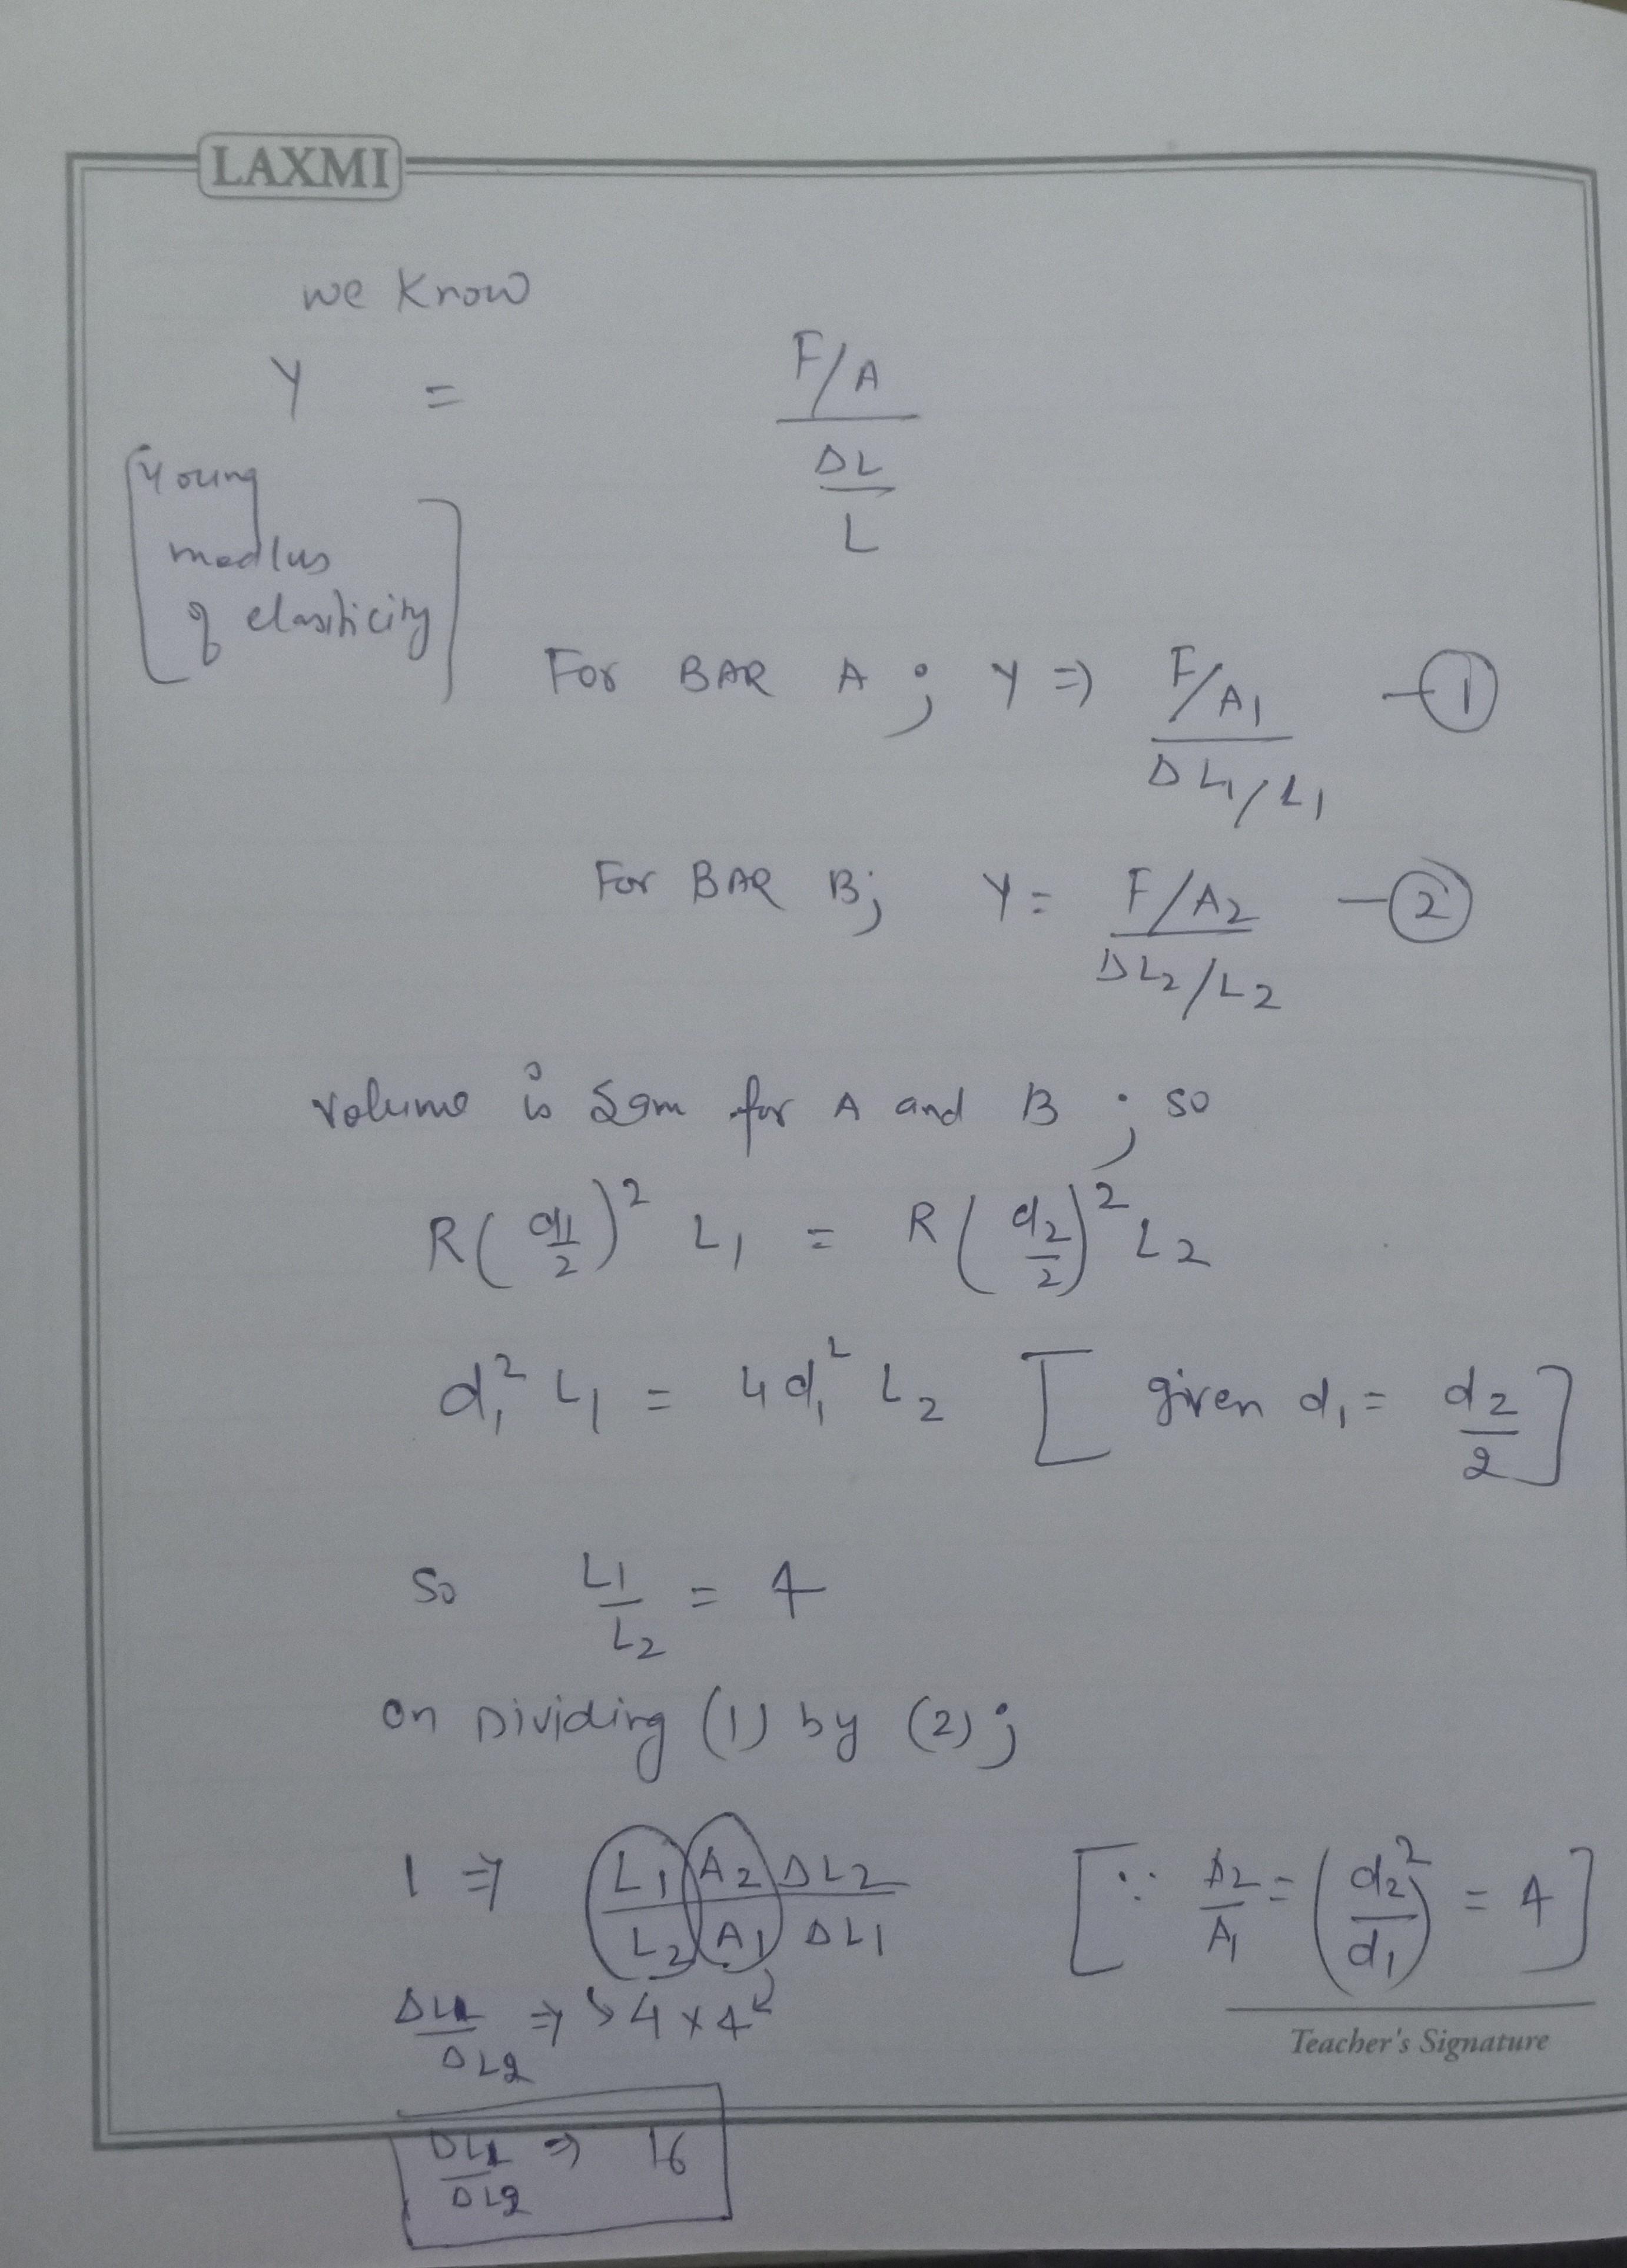 LAXMI
we know
Y = F/A / ΔL/L
[Young
modlus
of elasticity]
For BAR A ; Y ⇒ F/A1 / ΔL1/L1 —①
For BAR B; Y = F/A2 / ΔL2/L2 —②
Volume is Sam for A and B ; so
R(d1/2)² L1 = R(d2/2)² L2
d1² L1 = 4d1² L2 [given d1 = d2/2]
So L1/L2 = 4
On Dividing (1) by (2);
1 ⇒ L1/L2 A2/A1 ΔL2/ΔL1 [∵ A2/A1 = (d2/d1)² = 4]
ΔL1/ΔL2 ⇒ 4 x 4
Teacher's Signature
ΔL1/ΔL2 ⇒ 16